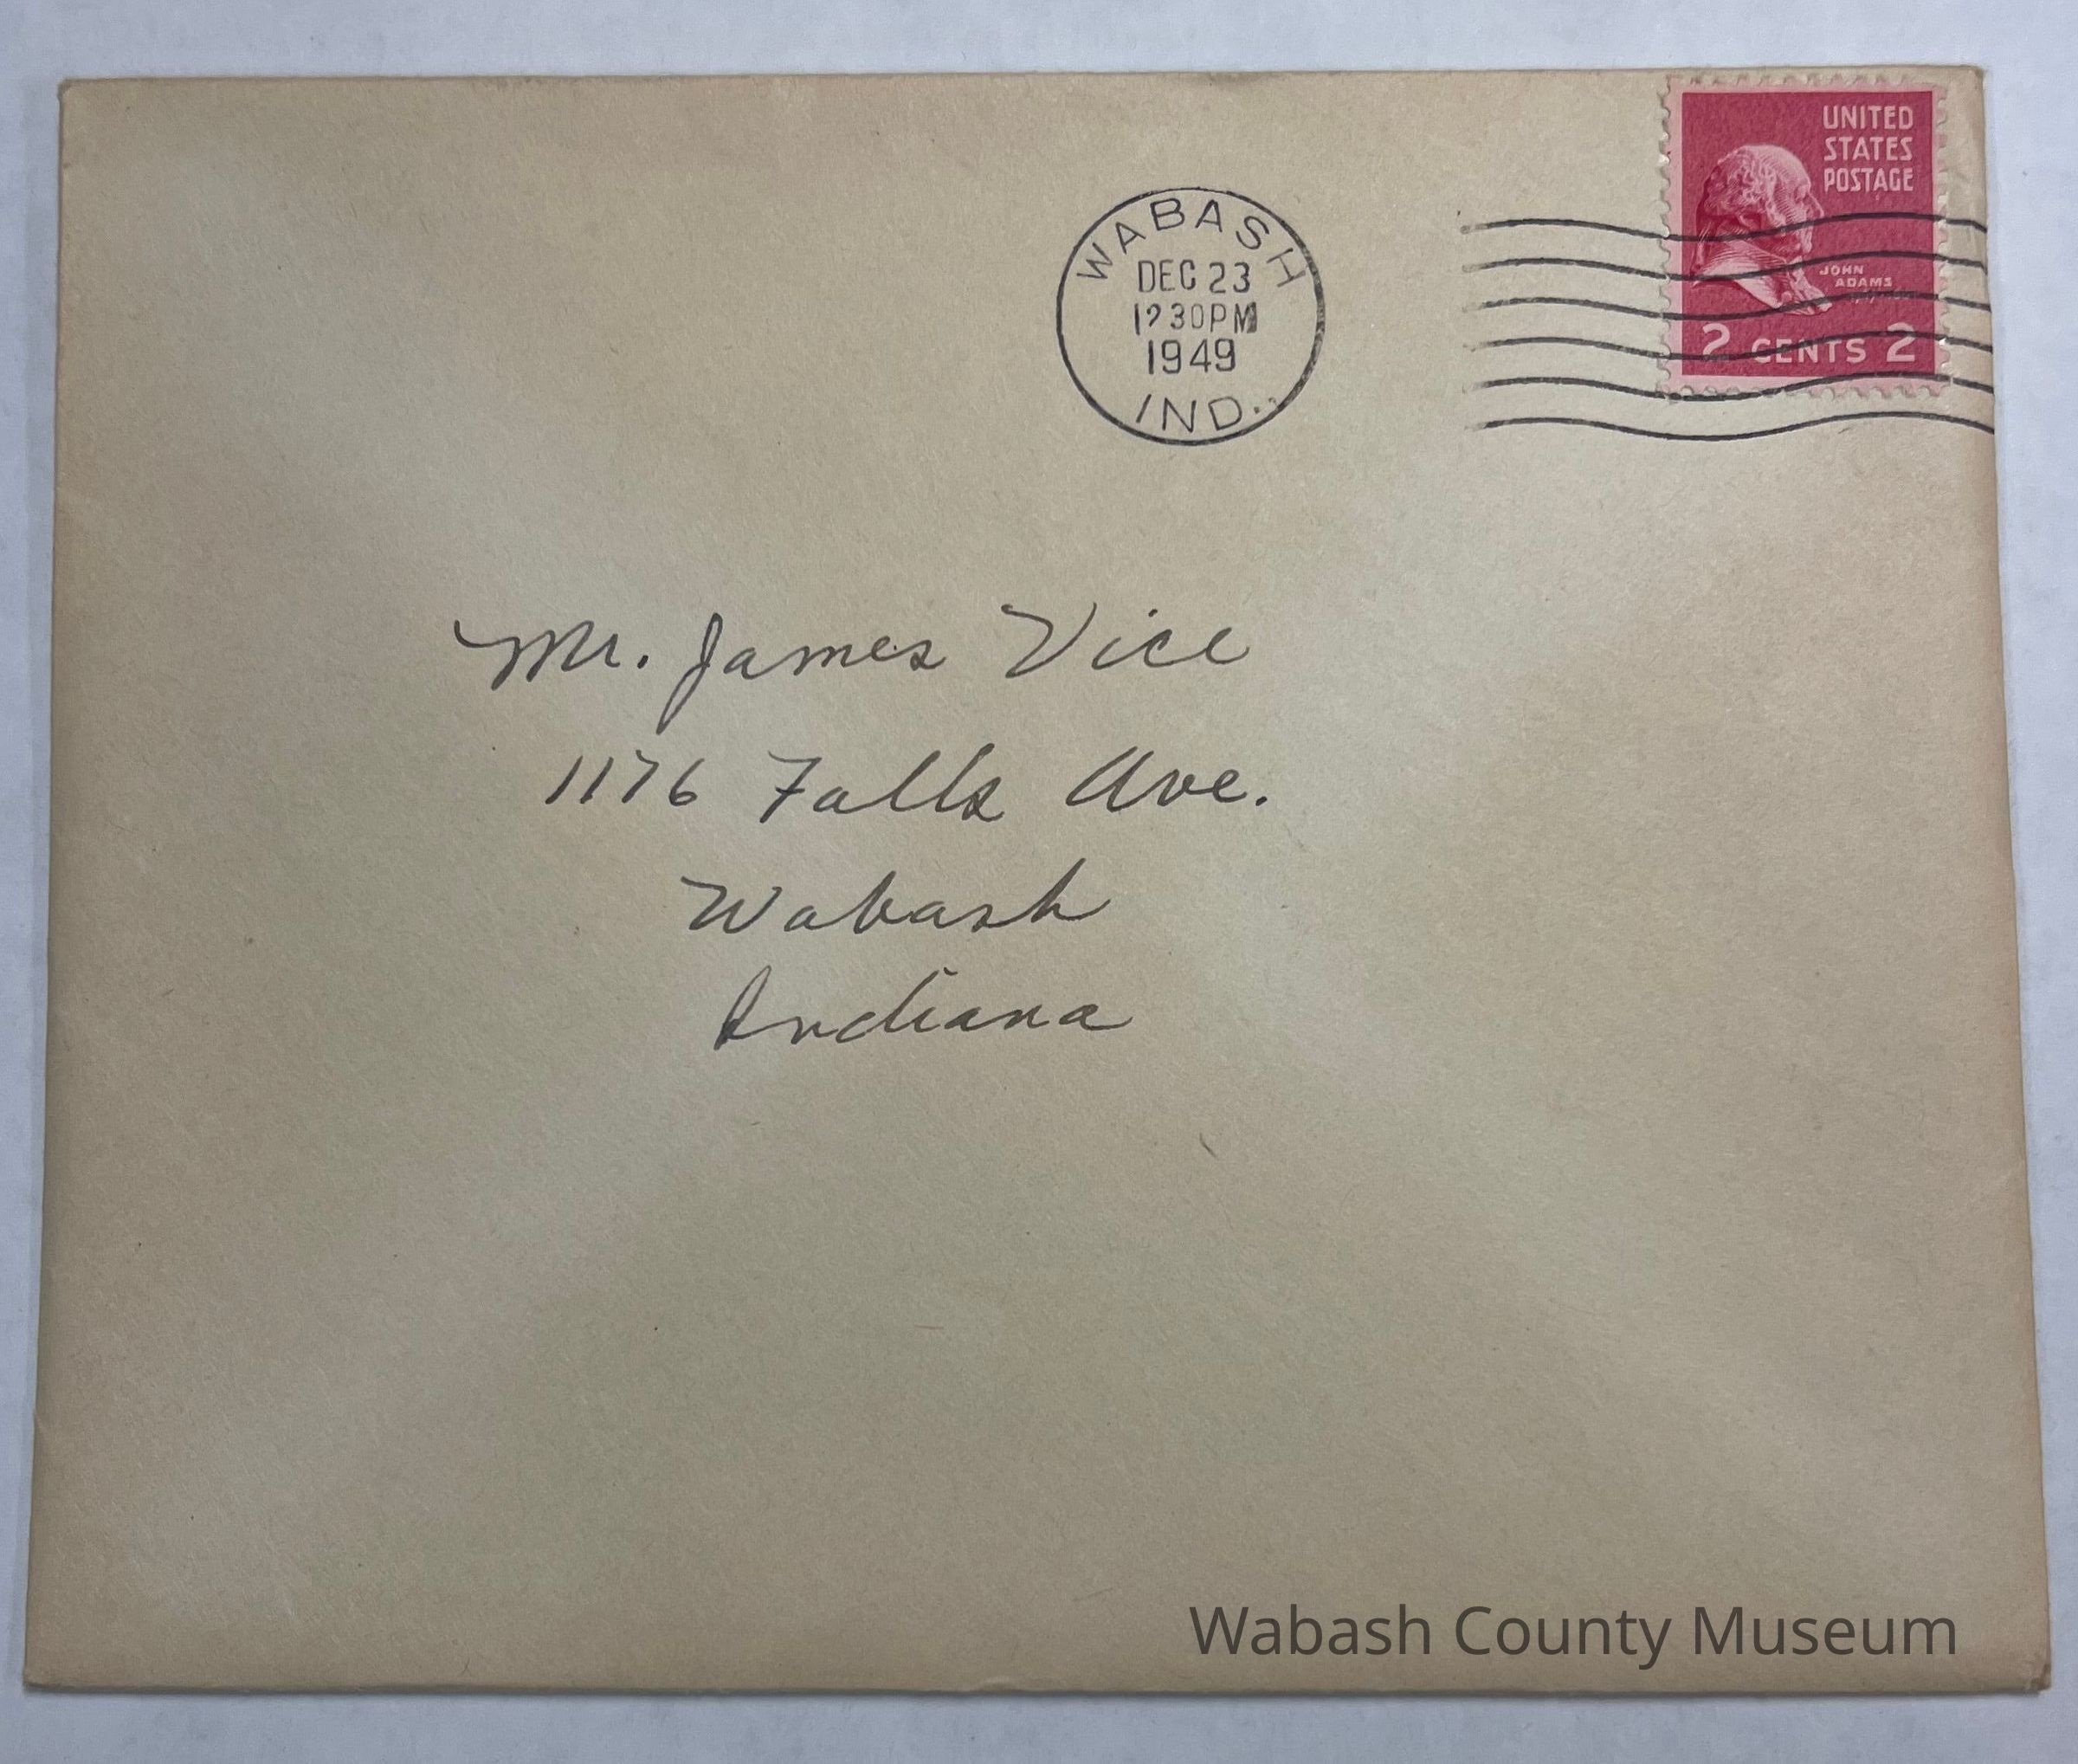 UNITED
STATES
POSTAGE
JOHN
ADAMS
2 CENTS 2
WABASH
DEC 23
12 30 PM
1949
IND.
Mr. James Vice
1176 Falls Ave.
Wabash
Indiana
Wabash County Museum